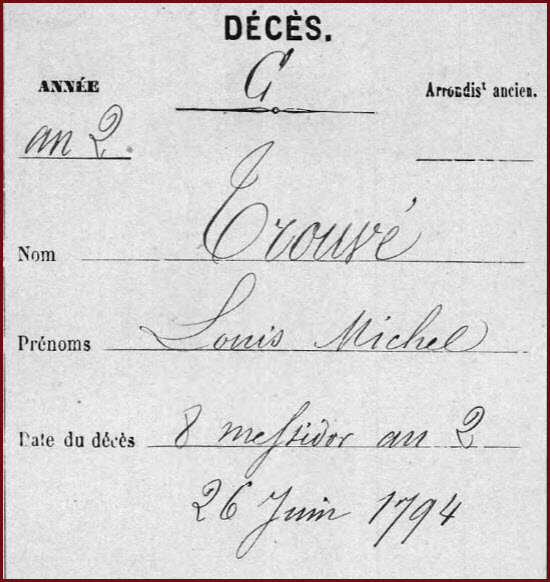 DÉCÈS.
G
ANNÉE
Arrondist ancien.
an 2.
Nom Trouvé
Prénoms Louis Michel
Date du décès 8 messidor an 2
26 Juin 1794